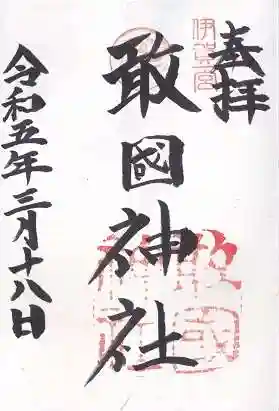 奉拝
伊賀一宮
敢國神社
令和五年三月十八日